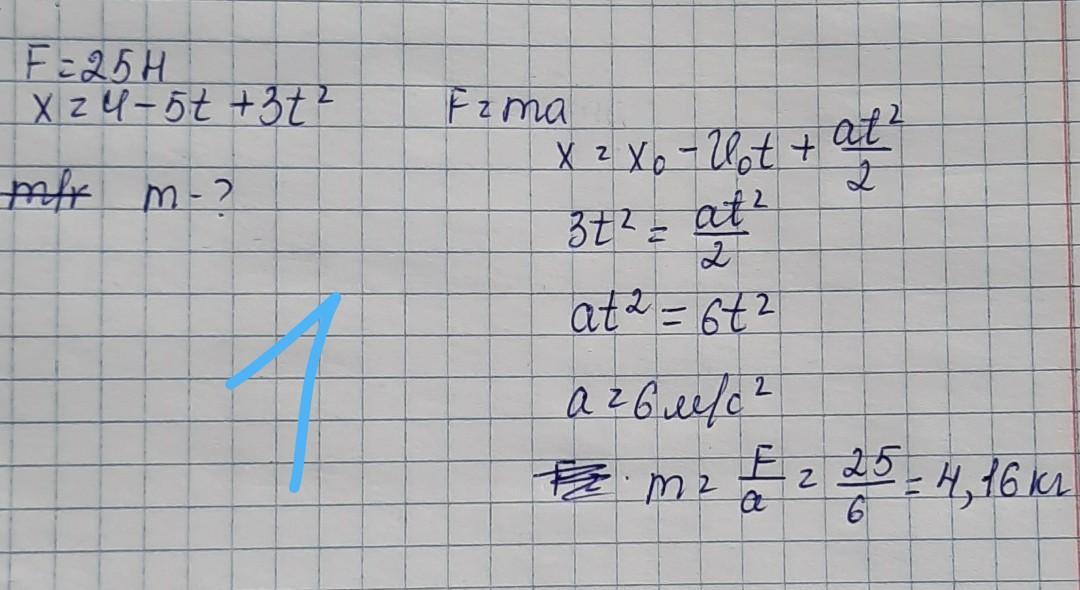 F = 25 Н
x = 4 - 5t + 3t²
m - ?
F = ma
x = x₀ - v₀t + at²/2
3t² = at²/2
at² = 6t²
a = 6 м/с²
m = F/a = 25/6 = 4,16 кг
1